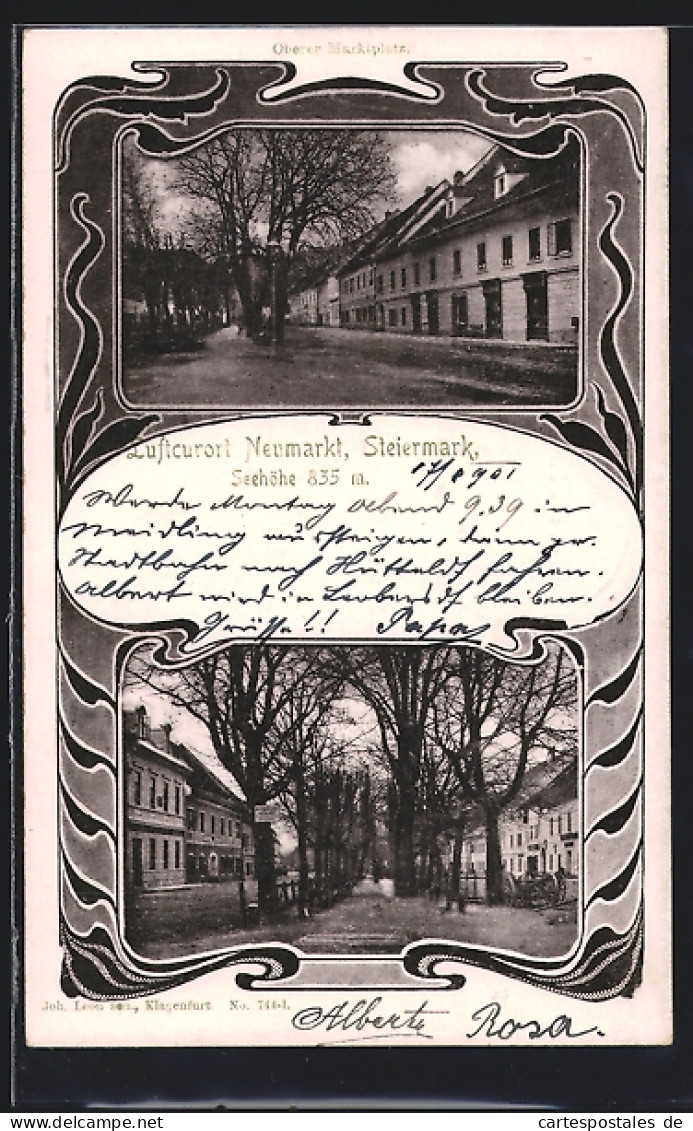 Oberer Marktplatz.
Luftcurort Neumarkt, Steiermark,
Seehöhe 835 m.
17/8 901
Werde Montag abend 9.39 in
Meidling aussteigen, dann pr.
Stadtbahn nach Hütteldf fahren.
Albert wird in Leobersdf bleiben.
Grüsse!! Papa
Joh. Leon sen., Klagenfurt. No. 744d.
Alberte Rosa.
cartespostales.de